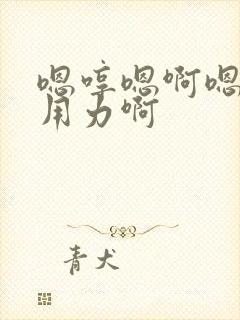 嗯哼嗯啊嗯
用力啊
青犬